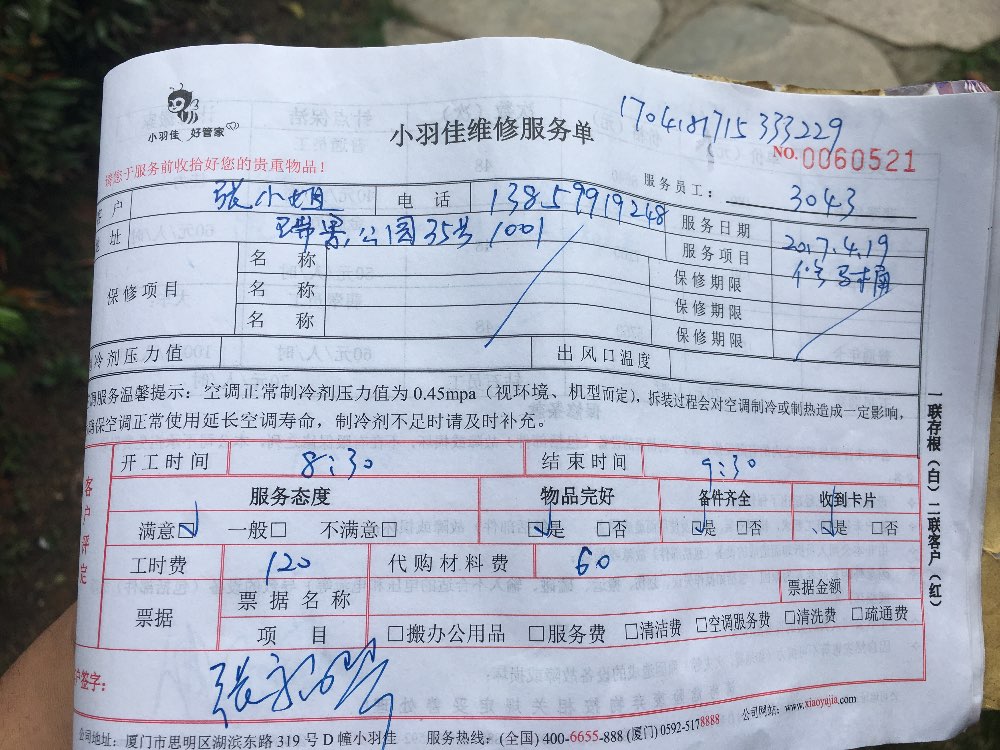 小羽佳 好管家
小羽佳维修服务单
1704181715333229
NO.0060521
请您于服务前收拾好您的贵重物品！
服务员工： 3043
客户 张小姐 电话 13859919248 服务日期 2017.4.19
地址 瑞景公园35号1001 服务项目
保修项目 名称 保修期限
名称 保修期限
名称 保修期限
冷剂压力值 出风口温度
服务温馨提示：空调正常制冷剂压力值为0.45mpa（视环境、机型而定），拆装过程会对空调制冷或制热造成一定影响，
确保空调正常使用延长空调寿命，制冷剂不足时请及时补充。
开工时间 8:30 结束时间 9:30
客户评定
服务态度 物品完好 备件齐全 收到卡片
满意☑ 一般□ 不满意□ ☑是 □否 ☑是 □否 ☑是 □否
工时费 120 代购材料费 60
票据 票据名称 票据金额
项目 □搬办公用品 □服务费 □清洁费 □空调服务费 □清洗费 □疏通费
户签字：
公司地址：厦门市思明区湖滨东路319号D幢小羽佳 服务热线：(全国) 400-6655-888 (厦门) 0592-5178888 公司网站：www.xiaoyujia.com
一联存根（白）二联客户（红）